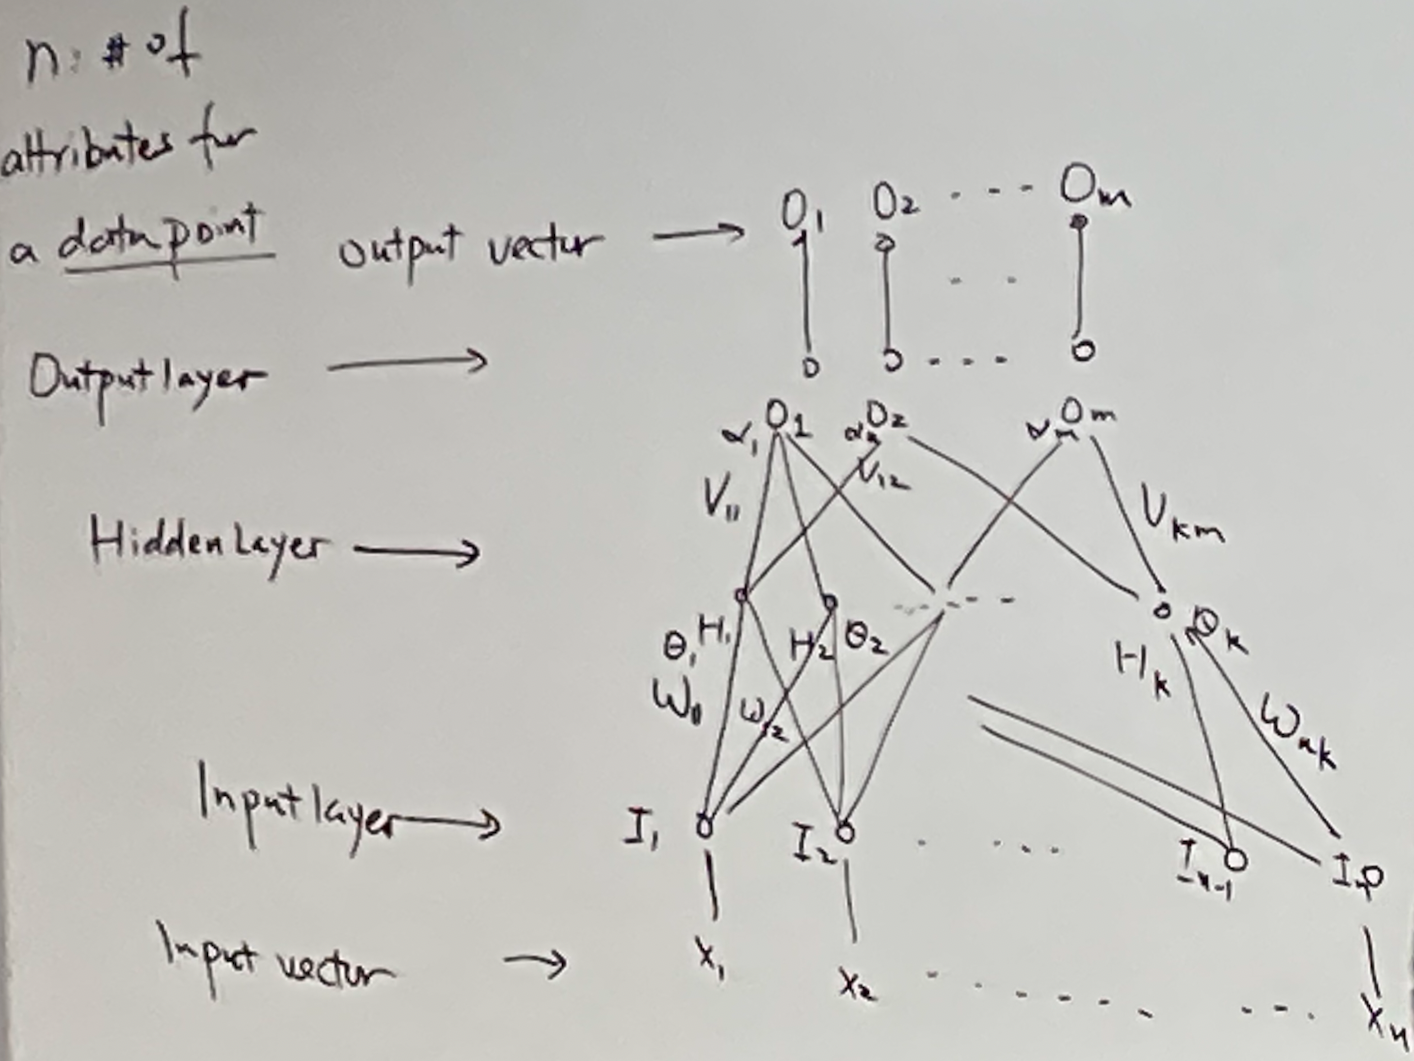 n: # of
attributes for
a data point
output vector → O₁ O₂ - - - Oₘ
Output layer →
α₁ O₁ O₂ αₘ Oₘ
V₁₁ V₁₂ Vₖₘ
Hidden Layer →
θ₁ H₁ H₂ θ₂ Hₖ θₖ
W₁₂ Wₙₖ
Input layer → I₁ I₂ Iₙ₋₁
Input vector → X₁ X₂ Xₙ